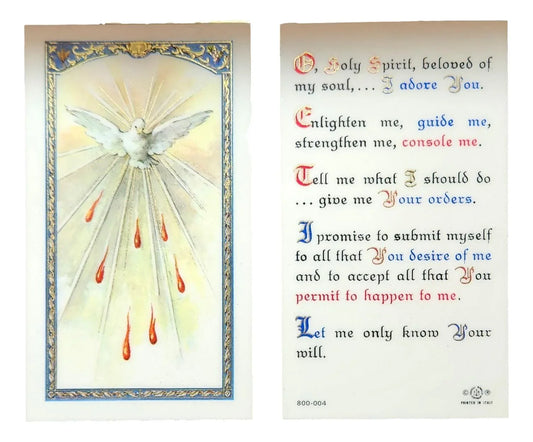 O, Holy Spirit, beloved of
my soul,... I adore You.
Enlighten me, guide me,
strengthen me, console me.
Tell me what I should do
... give me Your orders.
I promise to submit myself
to all that You desire of me
and to accept all that You
permit to happen to me.
Let me only know Your
will.
800-004
© ®
PRINTED IN ITALY